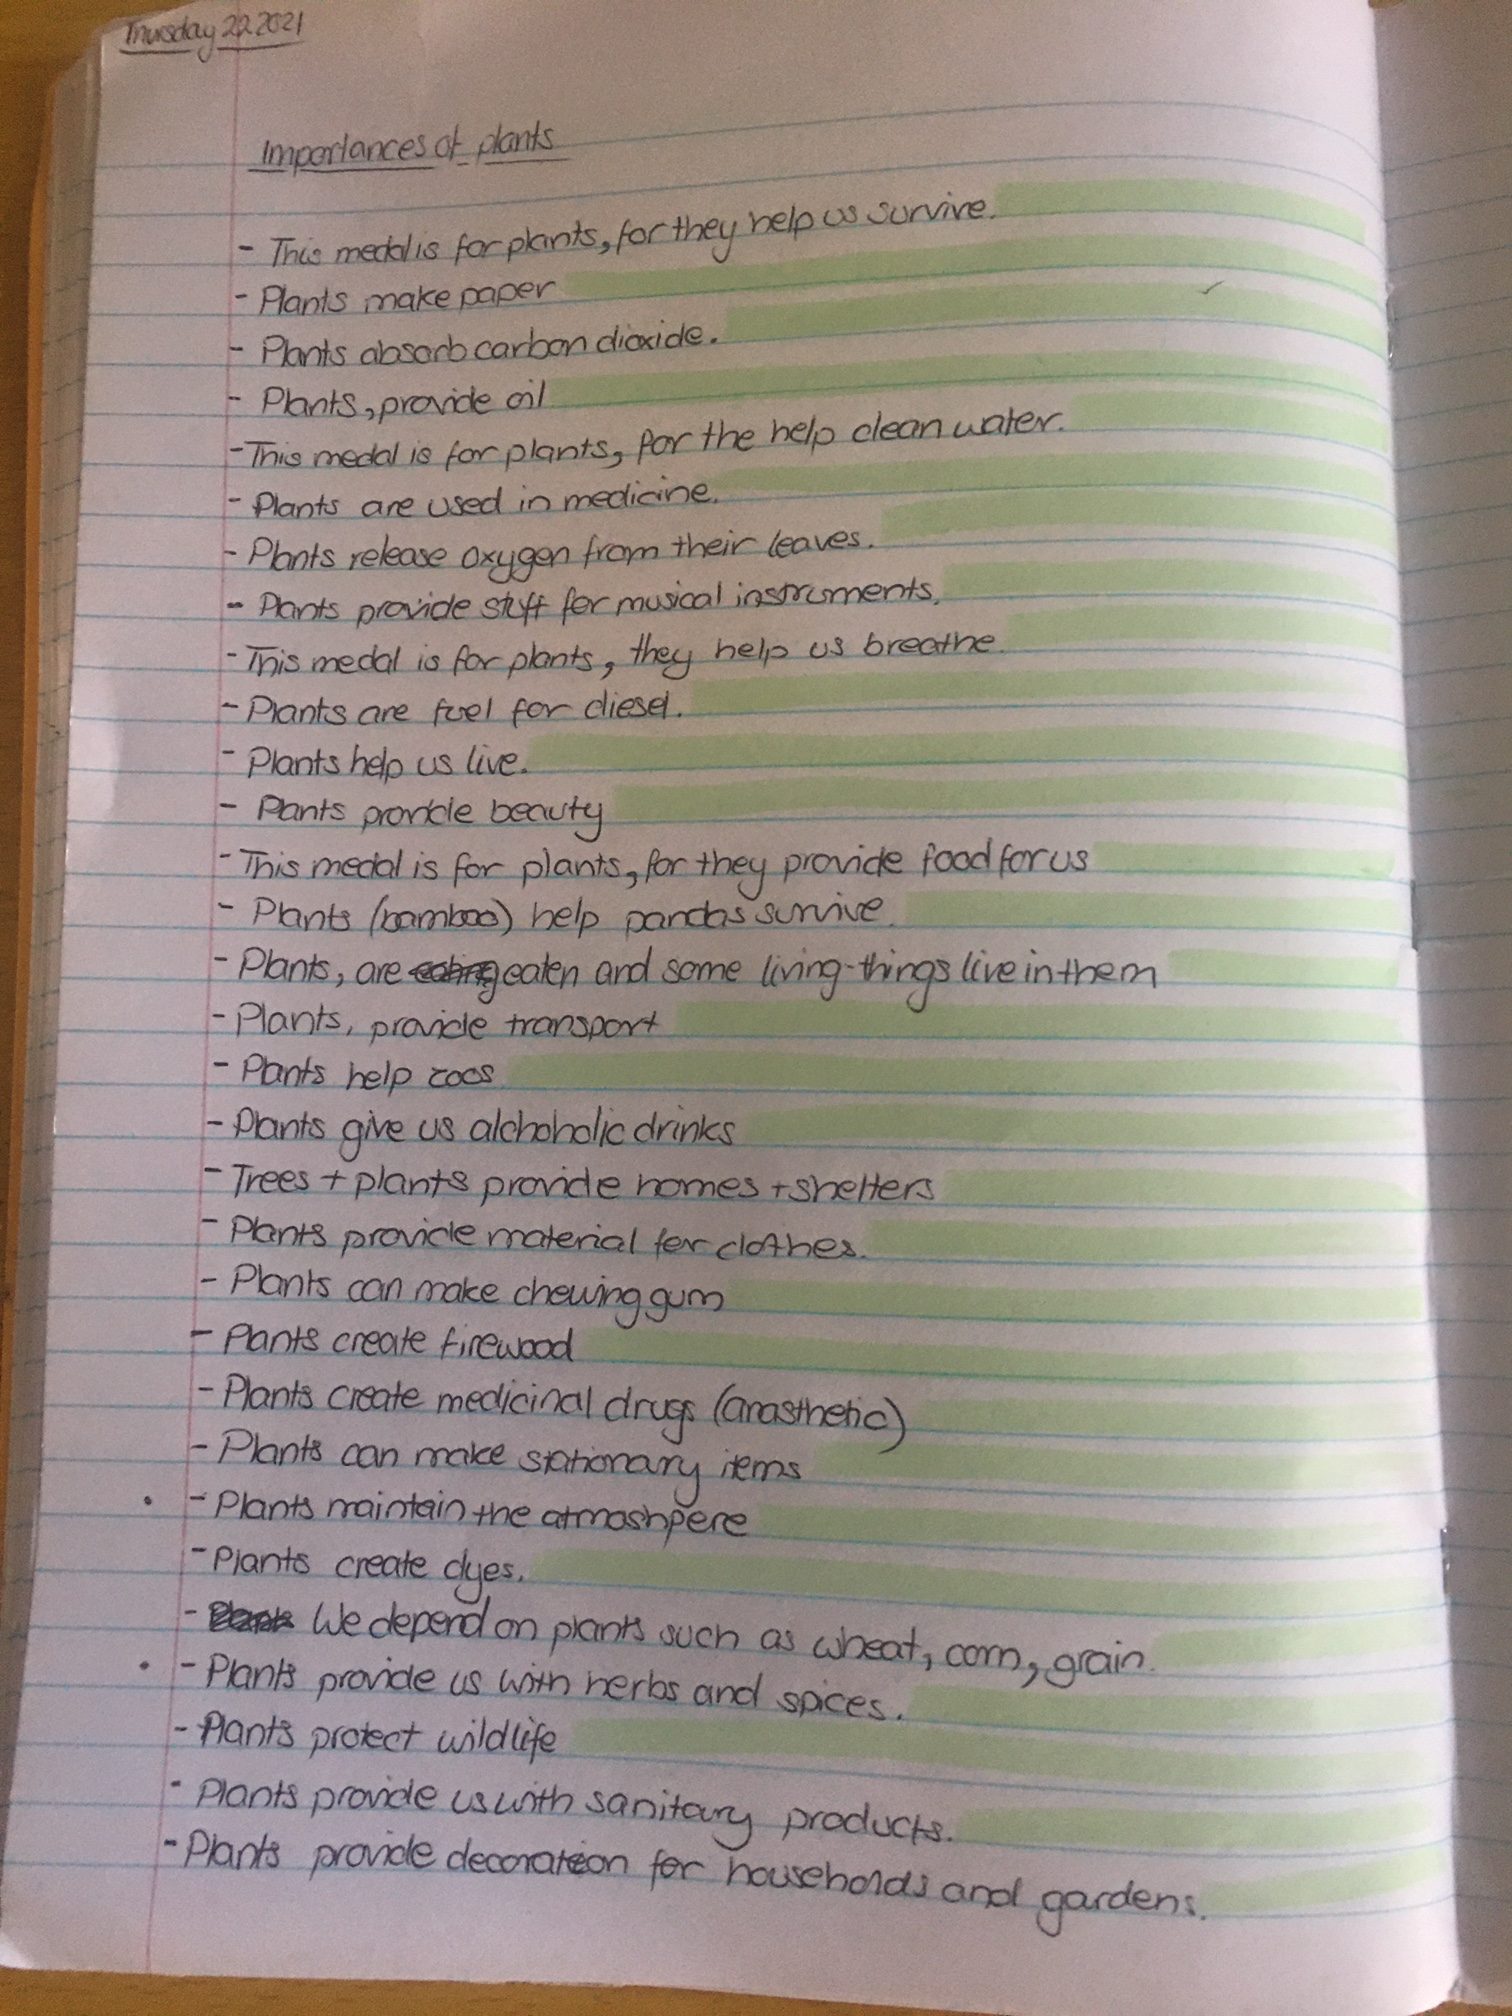 Thursday 22 2021
Importances of plants
- This medal is for plants, for they help us survive.
- Plants make paper
- Plants absorb carbon dioxide.
- Plants, provide oil
- This medal is for plants, for the help clean water.
- Plants are used in medicine.
- Plants release oxygen from their leaves.
- Plants provide stuff for musical instruments.
- This medal is for plants, they help us breathe.
- Plants are fuel for diesel.
- Plants help us live.
- Plants provide beauty
- This medal is for plants, for they provide food for us
- Plants (bamboo) help pandas survive.
- Plants, are eaten and some living-things live in them
- Plants, provide transport
- Plants help zoos.
- Plants give us alchoholic drinks
- Trees + plants provide homes + shelters
- Plants provide material for clothes.
- Plants can make chewing gum
- Plants create firewood
- Plants create medicinal drugs (anasthetic)
- Plants can make stationary items
• - Plants maintain the atmoshpere
- Plants create dyes.
- We depend on plants such as wheat, corn, grain.
• - Plants provide us with herbs and spices.
- Plants protect wildlife
- Plants provide us with sanitary products.
- Plants provide decoration for households and gardens.